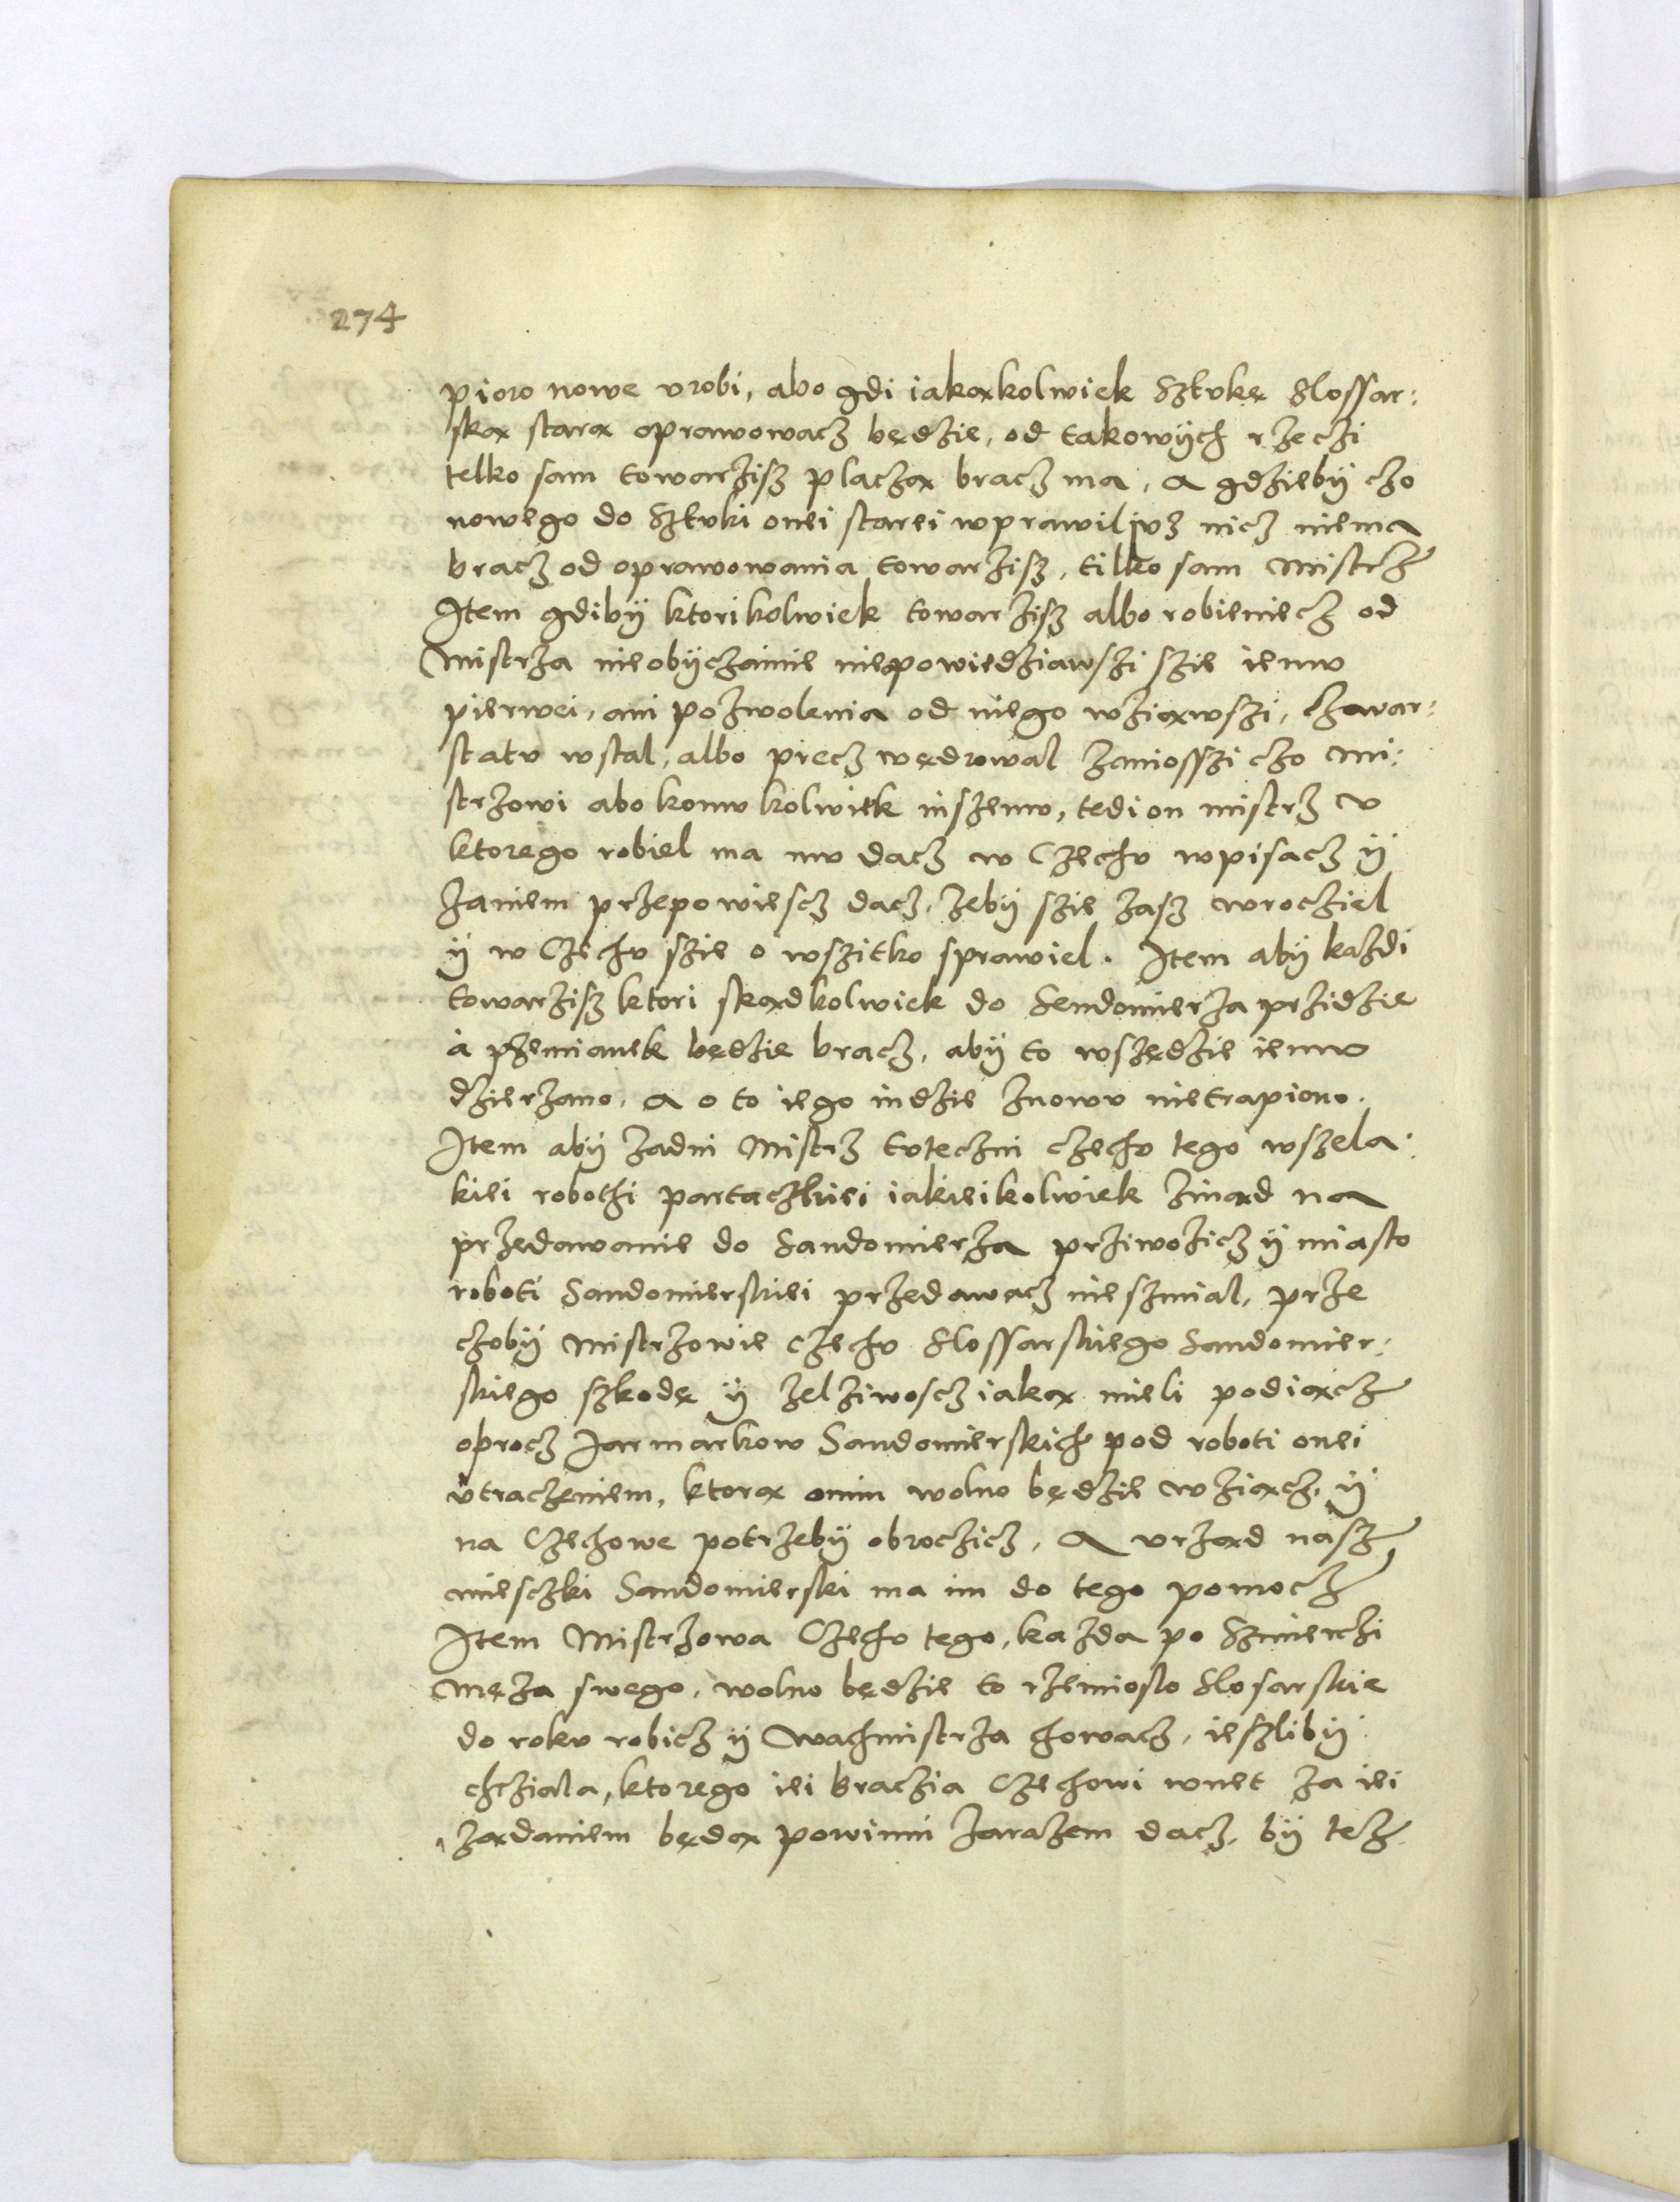 274
pioro nowe vrobi, abo gdi iakąkolwiek Sztukę Slossar:
ską starą oprawowacz będzie, od takowÿch rzeczi
telko sam towarzisz placzą bracz ma, a gdziebÿ czo
nowego do Sztuki onei starei wprawil iusz nicz niema
bracz od oprawowania towarzisz, tilko sam Mistrz
Item gdibÿ ktorikolwiek towarzisz albo robieniecz od
Mistrza nieobÿczainie niepowiedziawszi szie iemu
pierwei, ani pozwolenia od niego wziąwszi, Zawar:
statu wstal, albo precz wędrowal zaniosszi czo Mi:
strzowi abo komu kolwiek inszemu, tedi on mistrz v
ktorego robiel ma mu dacz w Czechu wpisacz ÿ
zaniem przepowiescz dacz, zebÿ szie zasz wrocziel
ÿ w Czechu szie o wszitko sprawiel. Item abÿ kazdi
towarzisz ktori skądkolwiek do Sendomierza przidzie
a przemianek będzie bracz, abÿ to wszędzie iemu
dzierzano, a o to iego indzie znowu nietrapiono.
Item abÿ zadni Mistrz tuteczni czechu tego wszela:
kiei robothi partaczkiei iakieikolwiek zinąd na
przedawanie do Sandomierza prziwozicz ÿ miasto
roboti Sandomierskiei przedawacz nieszmial, prze
czobÿ Mistrzowie czechu Slossarskiego Sandomier:
skiego szkodę ÿ zelziwoscz iaką mieli podiącz
oprocz Jarmarkow Sandomierskich pod roboti onei
vtraczeniem, ktorą onim wolno będzie wziącz, ÿ
na Czechowe potrzebÿ obroczicz, A vrząd nasz
miesczki Sandomierski ma im do tego pomocz
Item Mistrzowa Czechu tego, kazda po Szmierczi
Męza swego, wolno będzie to rzemioslo Slosarskie
do roku robicz ÿ Wachmistrza chowacz, ieszlibÿ
chcziala, ktorego iei braczia Czechowi wnet za iei
ządaniem będą powinni zarazem dacz, bÿ tez